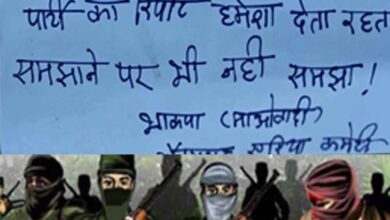 पार्टी का रिपोट हमेशा देता रहता
समझाने पर भी नही समझा!
भाकपा (माओवादी)
एरिया कमेटी